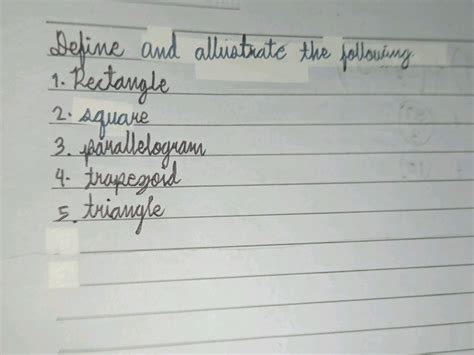 Define and allustrate the following
1. Rectangle
2. square
3. parallelogram
4. trapezoid
5. triangle